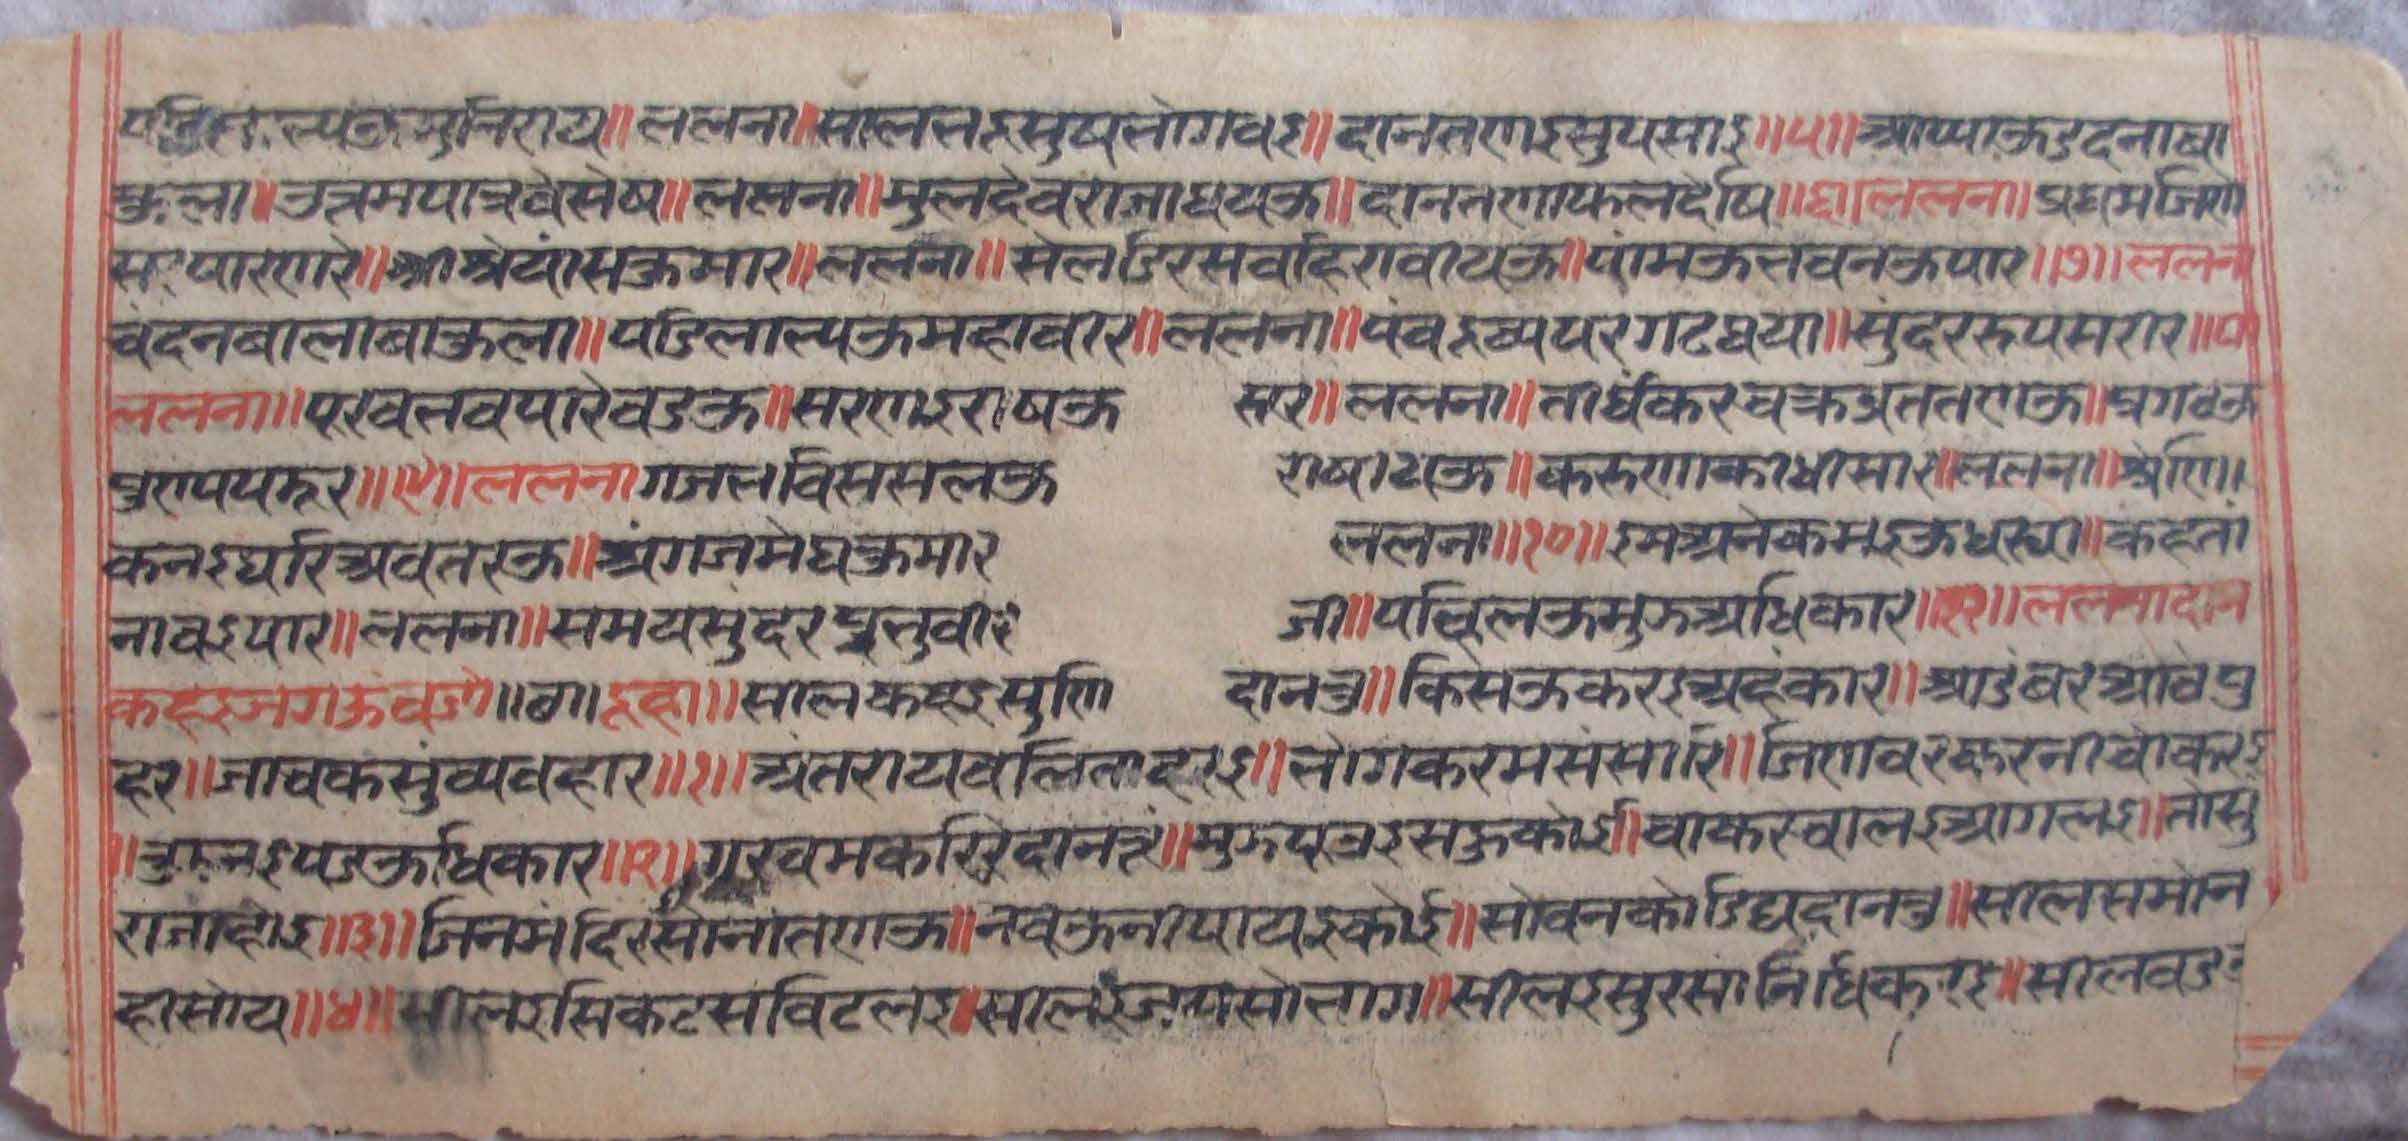 मुनिराय॥ ललना॥ दानतणइसुपसाइ॥५॥
कुला॥ उत्तमपात्रविसेष॥ ललना॥ मुलदेवराजाथयऊ॥ दानतणाफलदेषि॥६॥ललना॥ प्रथमजिणे
सरपारणारे॥ श्रीश्रेयांसकुमार॥ ललना॥ सेलडिरसवहिरावीयऊ॥ पांमऊभवनऊपार॥७॥ ललन
चंदनबालाबाकुला॥ पडिलाभ्यऊमहावीर॥ ललना॥ पंचद्रव्यपरगटथया॥ सुंदररूपसरीर॥८
ललना॥ पूरवभवपारेवडऊ॥ सरणइराषऊ सूर॥ ललना॥ तीर्थंकरचक्रव्रततणऊ॥ प्रगटऊ
पुण्यपडूर॥९॥ ललना गजभविससलऊ राषीयऊ॥ करुणाकीधीसार॥ ललना॥ श्रेणि
कनइघरिअवतरऊ॥ अंगजमेघकुमार ललना॥१०॥ इमअनेकमइऊधस्या॥ कहतां
नावइपार॥ ललना॥ समयसुंदरप्रभुवीर जी॥ पहिलऊमुझअधिकार॥११॥ ललनादान
कहइजगऊंवडो॥ दूहा॥ सीलकहइसुणि दानतु॥ किसऊकरइअहंकार॥ आडंबरआठेपु
हर॥ जाचकसुंव्यवहार॥१॥ अंतरायवलिताहरइ॥ भोगकरमसंसारि॥ जिणवरकरनीचोकरइ
॥ तुझनइपडऊधिकार॥२॥ गरवमकरिरेदानतूं॥ मुझपूठइसऊकोई॥ चाकरचालइआगलइ॥ तोसु
राजाहोइ॥३॥ जिनमंदिरसोनातणऊ॥ नवऊनीपायइकोई॥ सोवनकोडिद्यइदानतु॥ सीलसमोन
हीसोय॥४॥ सीलइसंकटसविटलइ॥ सीलइजससोभाग॥ सीलइसुरसांनिधिकरइ॥ सीलवड